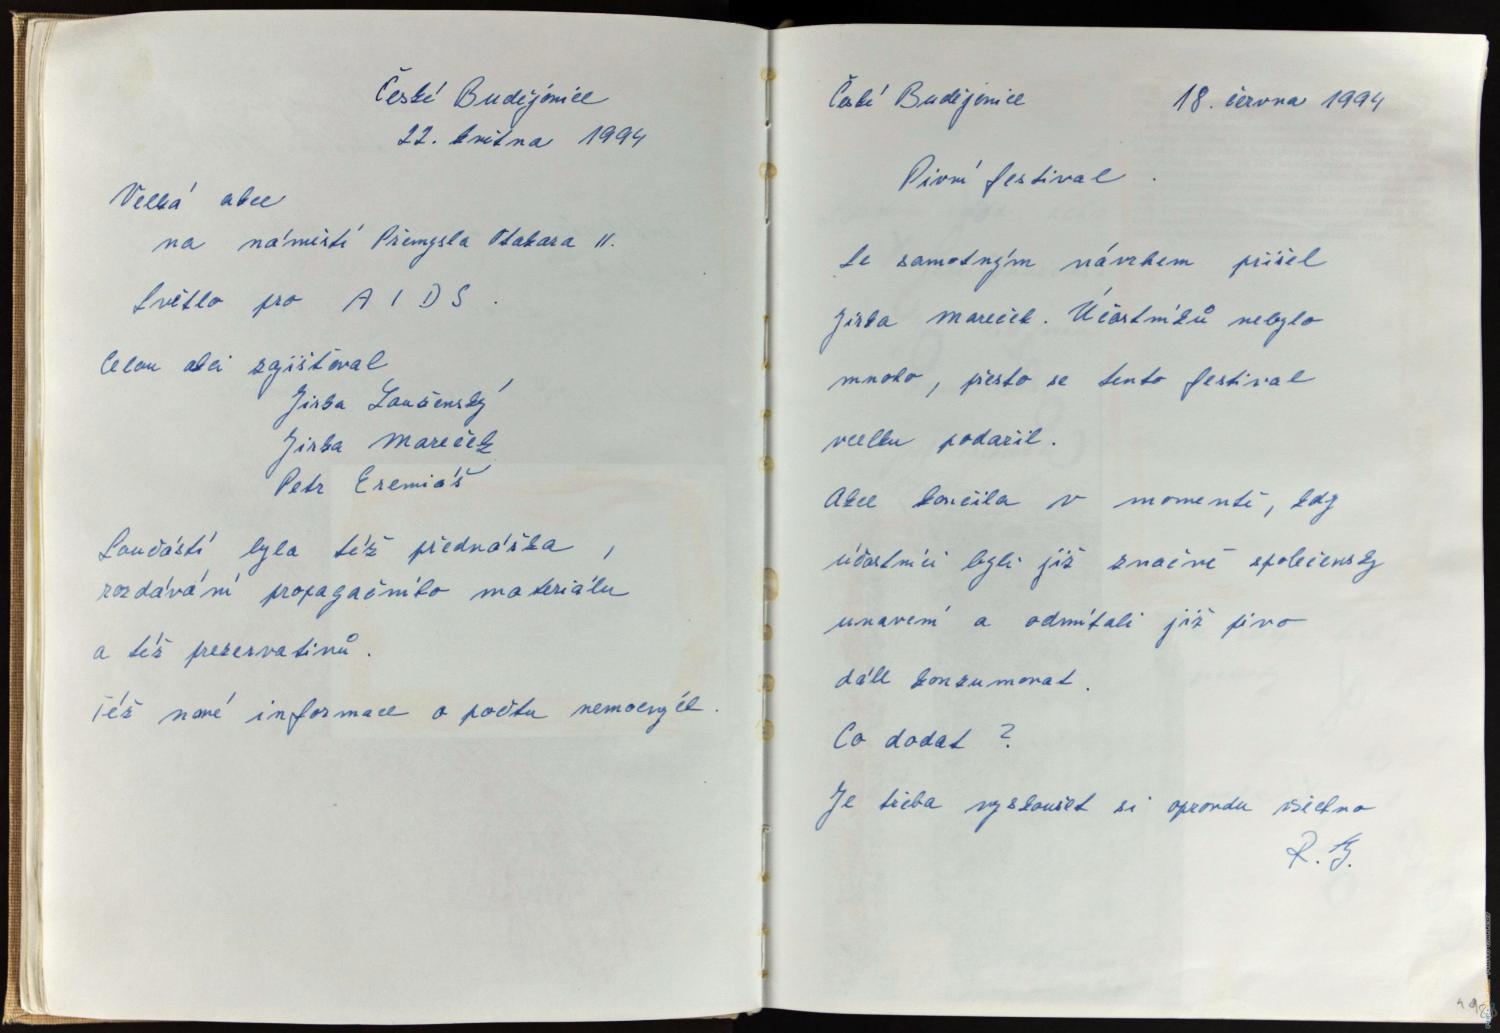 České Budějovice
22. května 1994
Velká akce
na náměstí Přemysla Otakara II.
Světlo pro AIDS.
Celou akci zajišťoval
Jirka Loučenský
Jirka Mareček
Petr Eremiáš
Součástí byla též přednáška,
rozdávání propagačního materiálu
a též prezervativů.
Též nové informace o počtu nemocných.
České Budějovice 18. června 1994
Pivní festival.
Se samotným návrhem přišel
Jirka Mareček. Účastníků nebylo
mnoho, přesto se tento festival
vcelku podařil.
Akce končila v momentě, kdy
účastníci byli již značně společensky
unavení a odmítali již pivo
dále konzumovat.
Co dodat?
Je třeba vyzkoušet si opravdu všechno